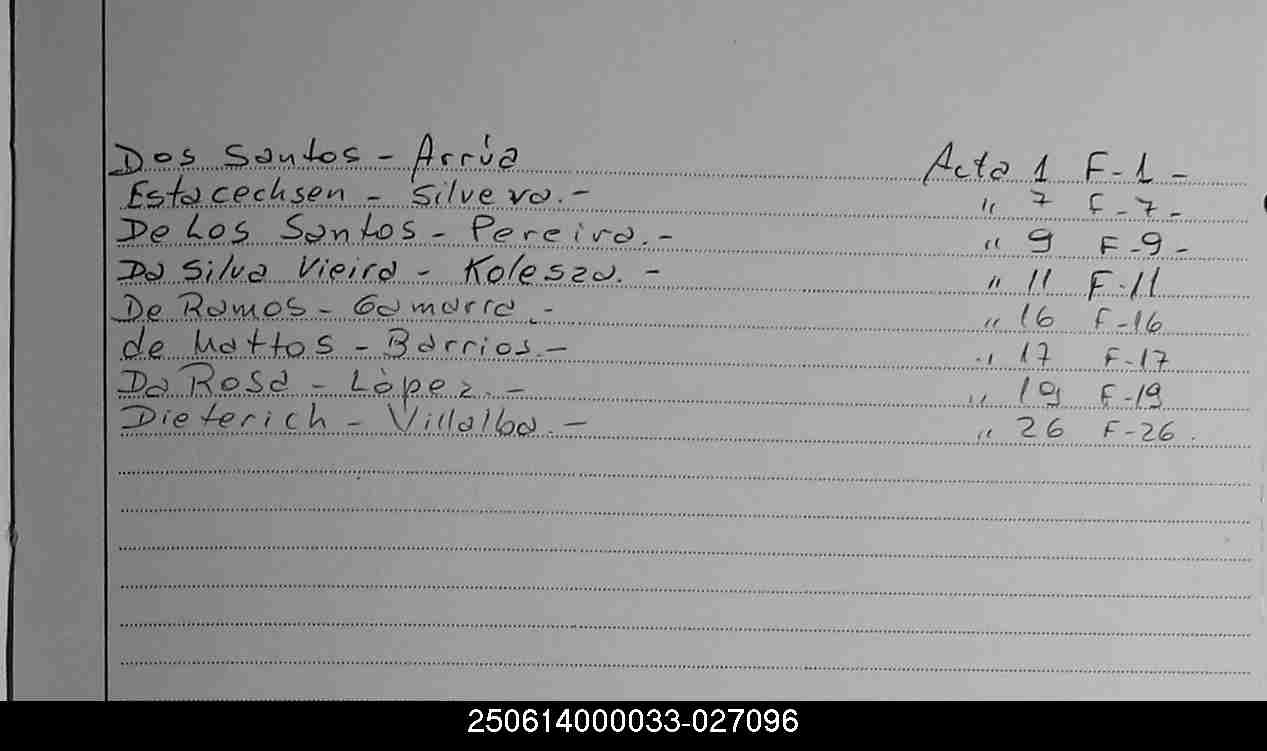 Dos Santos - Arrúa Acta 1 F-1-
Estacechsen - Silvera.- " 7 F-7-
De Los Santos - Pereira.- " 9 F-9-
Da Silva Vieira - Kolesza.- " 11 F-11
De Ramos - Gamarra.- " 16 F-16
de Mattos - Barrios.- " 17 F-17
Da Rosa - López.- " 19 F-19
Dieterich - Villalba.- " 26 F-26.
250614000033-027096